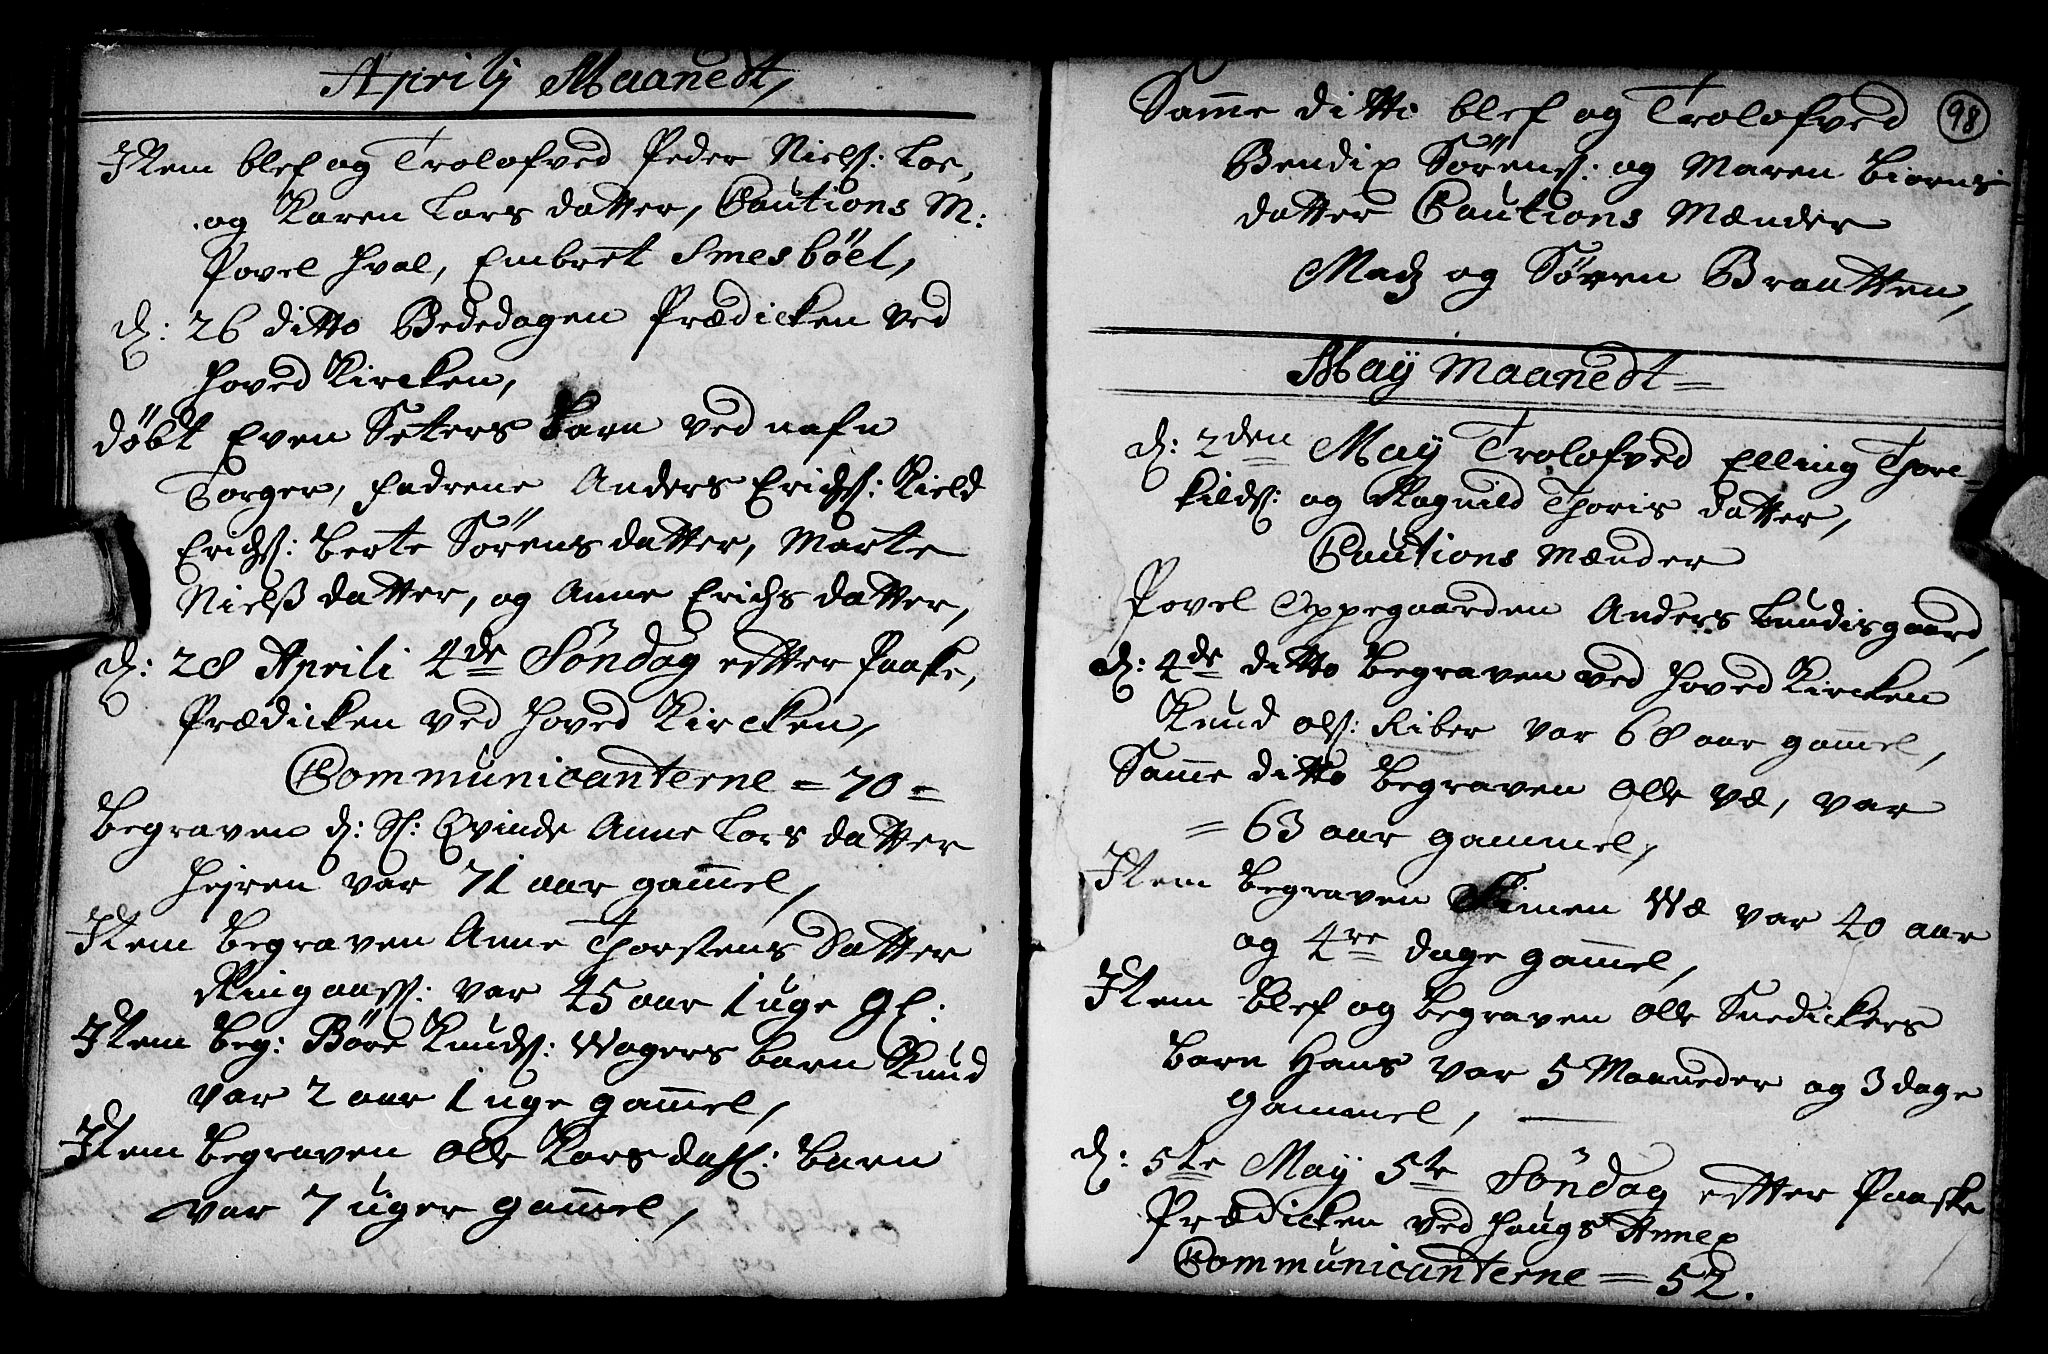 Aprilij Maanedt,
Item blef og Trolofved Peder Niels: Loe,
og Karen Lars datter, Cautions M:
Povel Hval, Embret Smesbøel,
d: 26 ditto Bededagen Prædicken ved
Hoved Kircken,
døbt Even Seters barn ved nafn
Torger, fadrene Anders Erichs: Kield
Erichs: Berte Sørens datter, Marte
Nielß datter, og Anne Erichs datter,
d: 28 Aprili 4de Søndag efter Paaske,
Prædicken ved Hoved Kircken,
Communicanterne = 70 =
Begraven d: Sl: Qvinde Anne Lars datter
Hejren var 71 aar gam̅el,
Item Begraven Anne Thorstens Datter
Ringaass: var 45 aar 1 uge gl:
Item beg: Børe Knuds: Wagers barn Knud
var 2 aar 1 uge gam̅el,
Item Begraven Olle Korsdahl: Barn
var 7 uger gam̅el,
98
Sam̅e ditto blef og Trolofved
Bendix Sørens: og Maren Biørns
datter Cautions Mænder
Madz og Søren Braatten,
May Maanedt =
d: 2den May Trolofved Elling Thore-
kilds: og Ragnild Thoris datter,
Cautions Mænder
Povel Oppegaarden Anders Bundisgaard,
d: 4de ditto Begraven ved Hoved Kircken
Knud Ols: Riber var 68 aar gam̅el,
Sam̅e ditto Begraven Olle Væ, var
= 63 aar gammel,
Item Begraven Simen Wæ var 40 aar
og 4re dage gam̅el,
Item Blef og begraven Olle Snedickers
Barn Hans var 5 Maaneder og 3 dage
gammel,
d: 5te May 5te Søndag efter Paaske
Prædicken ved Haugs Annex
Communicanterne = 52.